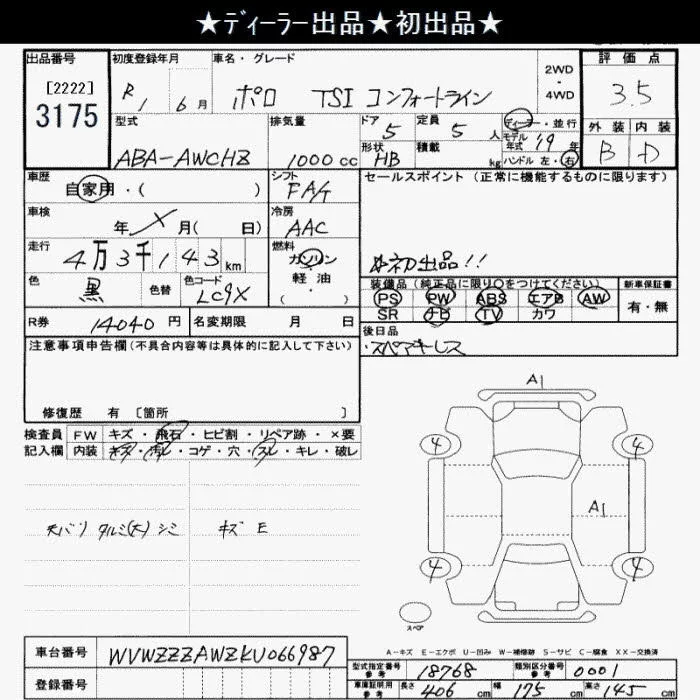 ★ディーラー出品★初出品★
出品番号 初度登録年月 車名・グレード 2WD・4WD 評価点
[2222]
3175
R1 6月 ポロ TSI コンフォートライン 3.5
型式 排気量 ドア 5 定員 5人 ディーラー・並行 外装 内装
モデル年式 '19年
ABA-AWCHZ 1000cc 形状 HB 積載 kg ハンドル 左・右 B D
車歴 自家用・( ) シフト FA/T セールスポイント (正常に機能するものに限ります)
車検 年 月( 日) 冷房 AAC
走行 4万3千143km 燃料 ガソリン
軽油
( )
初出品!!
色 黒 色替 色コード LC9X 装備品 (純正品に限り○をつけてください) 新車保証書
PS PW ABS エアB AW 有・無
SR ナビ TV カワ
R券 14040円 名変期限 月 日 後日品
・スペアキーレス
注意事項申告欄 (不具合内容等は具体的に記入して下さい)
修復歴 有 〔箇所 〕
検査員 FW キズ・飛石・ヒビ割・リペア跡・×要
記入欄 内装 キズ・汚レ・コゲ・穴・スレ・キレ・破レ
天バリ タルミ(大) シミ キズ E
A1
4 4
A1
4 4
スペア
A-キズ E-エクボ U-凹み W-補修跡 S-サビ C-腐食 XX-交換済
車台番号 WVWZZZAWZKU066987
型式指定番号 参考 18768 類別区分番号 参考 0001
登録番号 車庫証明用 参考 長さ 406cm 幅 175cm 高さ 145cm